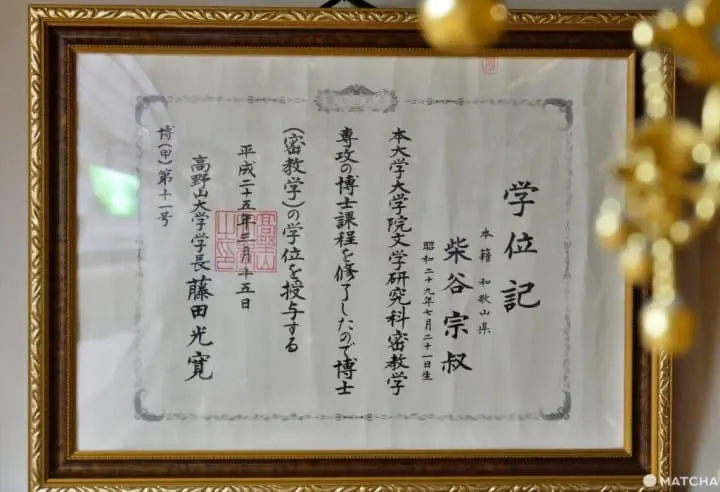 学位記
本籍 和歌山県
柴谷宗叔
昭和二十九年七月二十一日生
本大学大学院文学研究科密教学
専攻の博士課程を修了したので博士
(密教学)の学位を授与する
平成二十五年三月十五日
高野山大学学長 藤田光寛
博(甲)第十一号
MATCHA